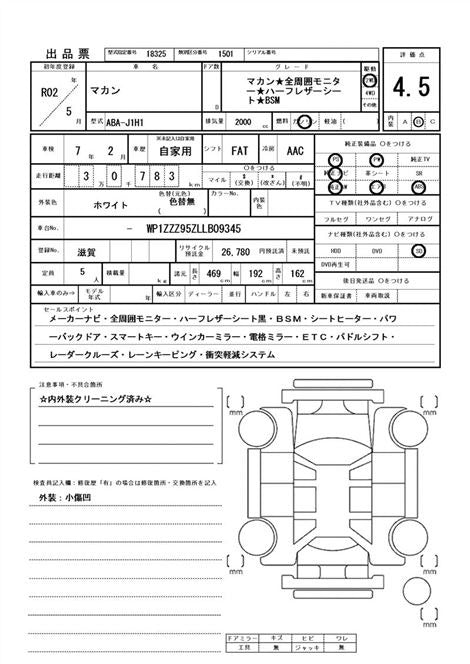 出品票 型式指定番号 18325 類別区分番号 1501 シリアル番号
評価点
初年度登録 車名 ドア数 グレード 駆動
R02年 5月
マカン
D
マカン★全周囲モニター★ハーフレザーシート★BSM
2WD
4WD
その他
4.5
型式 ABA-J1H1 排気量 2000 cc 燃料 ガソリン 軽油 ( )
内装 A B C
車検 7年 2月 車歴 ※未記入は自家用 自家用 シフト FAT 冷房 AAC
純正装備品 〇をつける
PS PW 純正TV
走行距離 3万 0千 783 km マイル 〇をつける $(交換) *(改ざん) #(不明)
純正ナビ 革シート SR
純正AW エアB ABS
外装色 ホワイト 色替(元色) 色替無 ( ) カラーNo. 内装色
TV種類(社外含む) 〇をつける
フルセグ ワンセグ アナログ
車台No. - WP1ZZZ95ZLLB09345
ナビ種類(社外含む) 〇をつける
HDD DVD SD
登録No. 滋賀 リサイクル預託金 26,780 円預託済 未預託
DVD再生可
定員 5人 積載量 kg 諸元 長さ 469cm 幅 192cm 高さ 162cm
後日発送品 〇をつける
輸入車のみ⇒ モデル年式 年 輸入区分 ディーラー 並行 ハンドル 左 右
新車保証書 車両取説
セールスポイント
メーカーナビ・全周囲モニター・ハーフレザーシート黒・BSM・シートヒーター・パワ
ーバックドア・スマートキー・ウインカーミラー・電格ミラー・ETC・パドルシフト・
レーダークルーズ・レーンキーピング・衝突軽減システム
注意事項・不具合箇所
☆内外装クリーニング済み☆
検査員記入欄：修復歴「有」の場合は修復箇所・交換箇所を記入
外装：小傷凹
[ ] mm
[ ] mm
[ ] mm
[ ] mm
ドアミラー キズ ヒビ ワレ
工具 無 ジャッキ 無